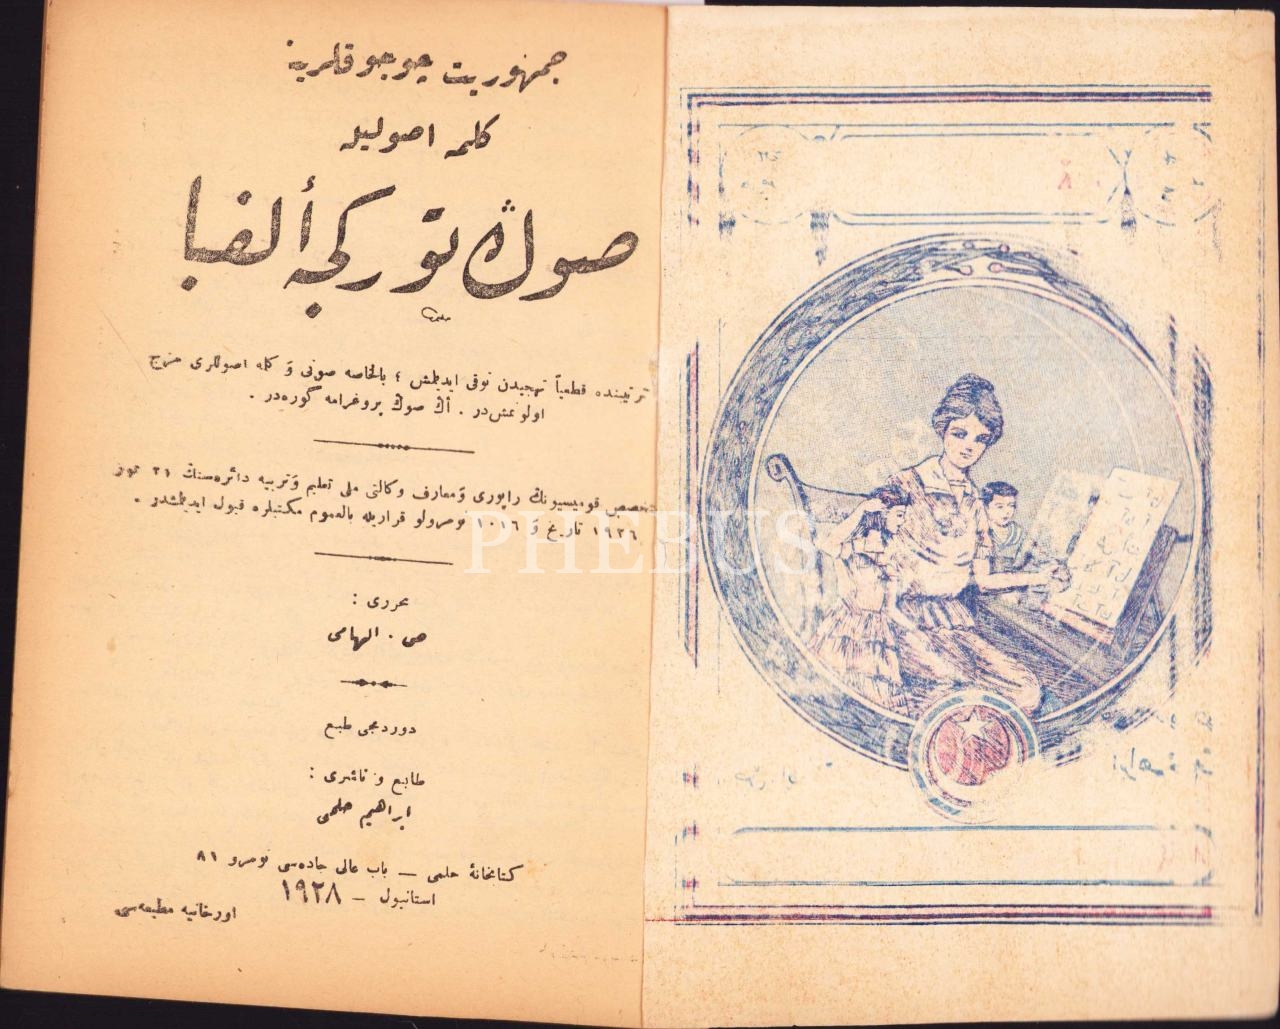 جمهوريت چوجوقلرينه
كلمه اصوليله
صوڭ توركجه ألفبا
ترتيبنده قطعياً تهجيدن توقى ايديلمش ؛ بالخاصه صوتى وَ كله اصوللرى مزج
اولونمش در . أڭ صوڭ پروغرامه كوره در .
متخصص قوميسيونڭ راپورى وَ معارف وكالتى ملى تعليم وَ تربيه دائره سنڭ ٢١ تموز
١٩٢٦ تاريخ وَ ١٠١٦ نومرولو قراريله بالعموم مكتبلره قبول ايديلمشدر .
محررى :
ص . الهامى
دوردنجى طبع
طابع و ناشرى :
ابراهيم حلمى
كتابخانهٔ حلمى — باب عالى جاده سى نومرو ٨١
استانبول — ١٩٢٨
اورخانيه مطبعه سى
PHEBUS